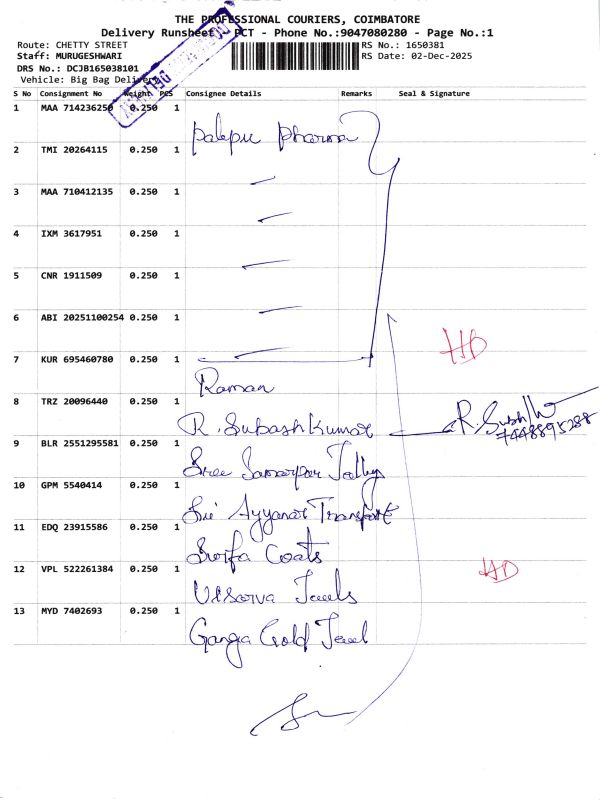 THE PROFESSIONAL COURIERS, COIMBATORE
Delivery Runsheet PCT - Phone No.:9047080280 - Page No.:1
Route: CHETTY STREET
Staff: MURUGESHWARI
DRS No.: DCJB165038101
Vehicle: Big Bag Delivery
RS No.: 1650381
RS Date: 02-Dec-2025
S No Consignment No Weight PCS Consignee Details Remarks Seal & Signature
1 MAA 714236250 0.250 1 Palepu Pharma
2 TMI 20264115 0.250 1
3 MAA 710412135 0.250 1
4 IXM 3617951 0.250 1
5 CNR 1911509 0.250 1
6 ABI 20251100254 0.250 1
HD
7 KUR 695460780 0.250 1 Raman
8 TRZ 20096440 0.250 1 R. Subash Kumar
7448895288
9 BLR 2551295581 0.250 1 Sree
10 GPM 5540414 0.250 1 Sri Ayyanar Transport
11 EDQ 23915586 0.250 1 Coats
12 VPL 522261384 0.250 1 Jewels
HD
13 MYD 7402693 0.250 1 Ganga Gold Jewel